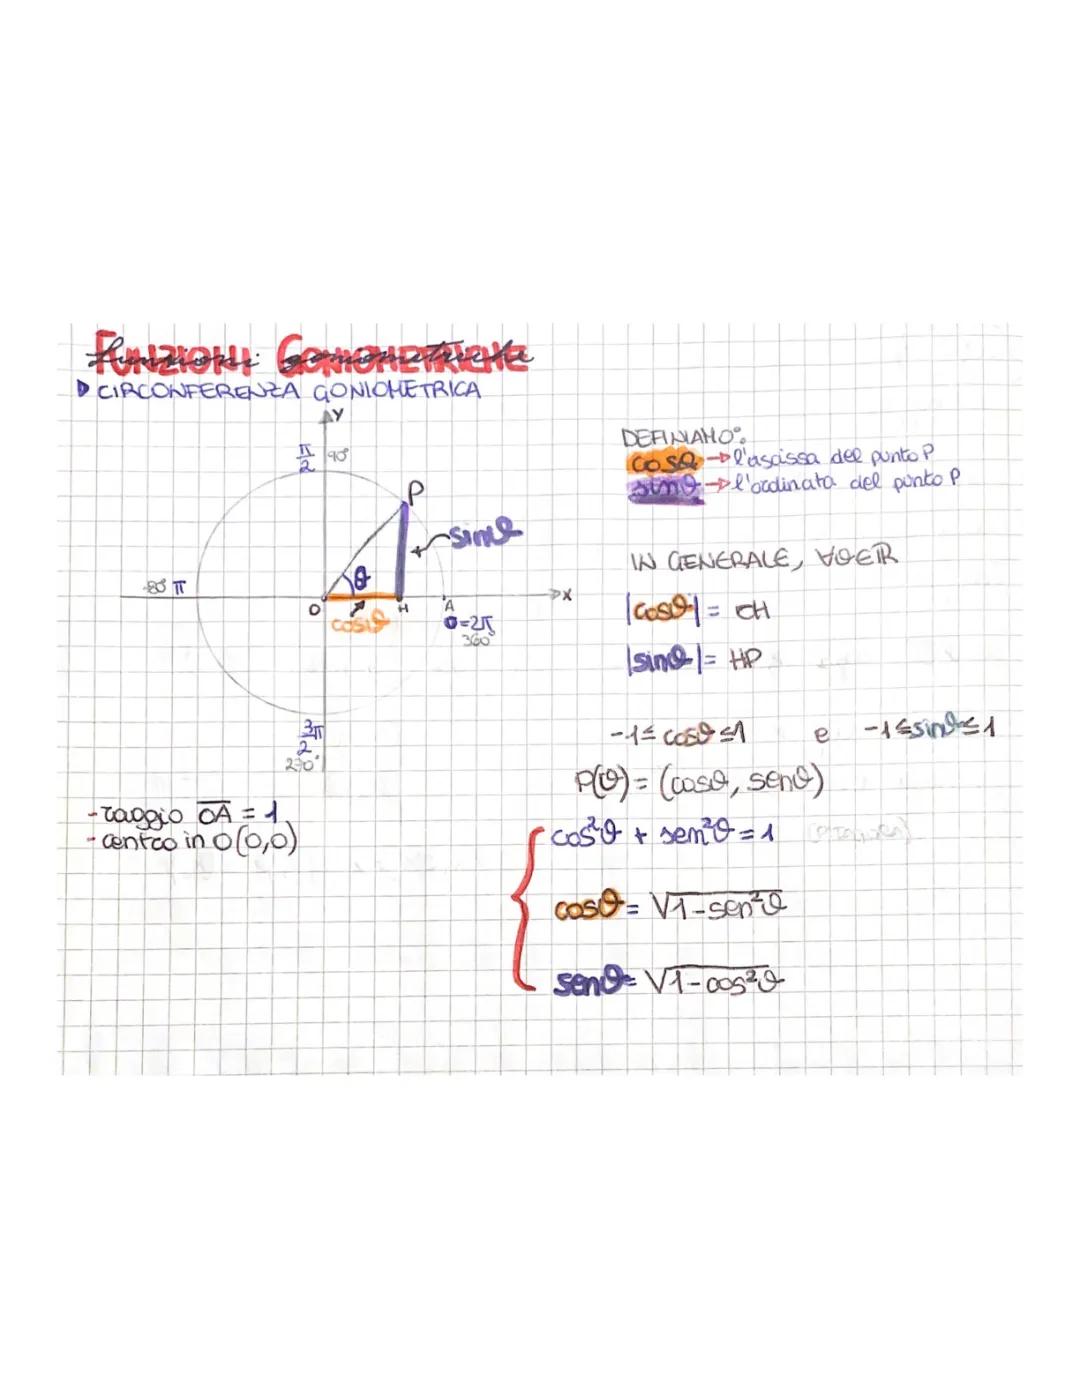 FUNZIONI GONIOMETRICHE
CIRCONFERENZA GONIOMETRICA
Y
π/2 90°
P
sinθ
θ
180° π
O
H
A
X
cosθ
0=2π
360°
3π/2
270°
- raggio OA = 1
- centro in O(0,0)
DEFINIAMO:
cosθ → l'ascissa del punto P
sinθ → l'ordinata del punto P
IN GENERALE, ∀θ∈ℝ
|cosθ| = OH
|sinθ| = HP
-1≤ cosθ ≤1 e -1≤sinθ≤1
P(θ) = (cosθ, senθ)
cos²θ + sen²θ = 1
cosθ = √1-sen²θ
senθ = √1-cos²θ